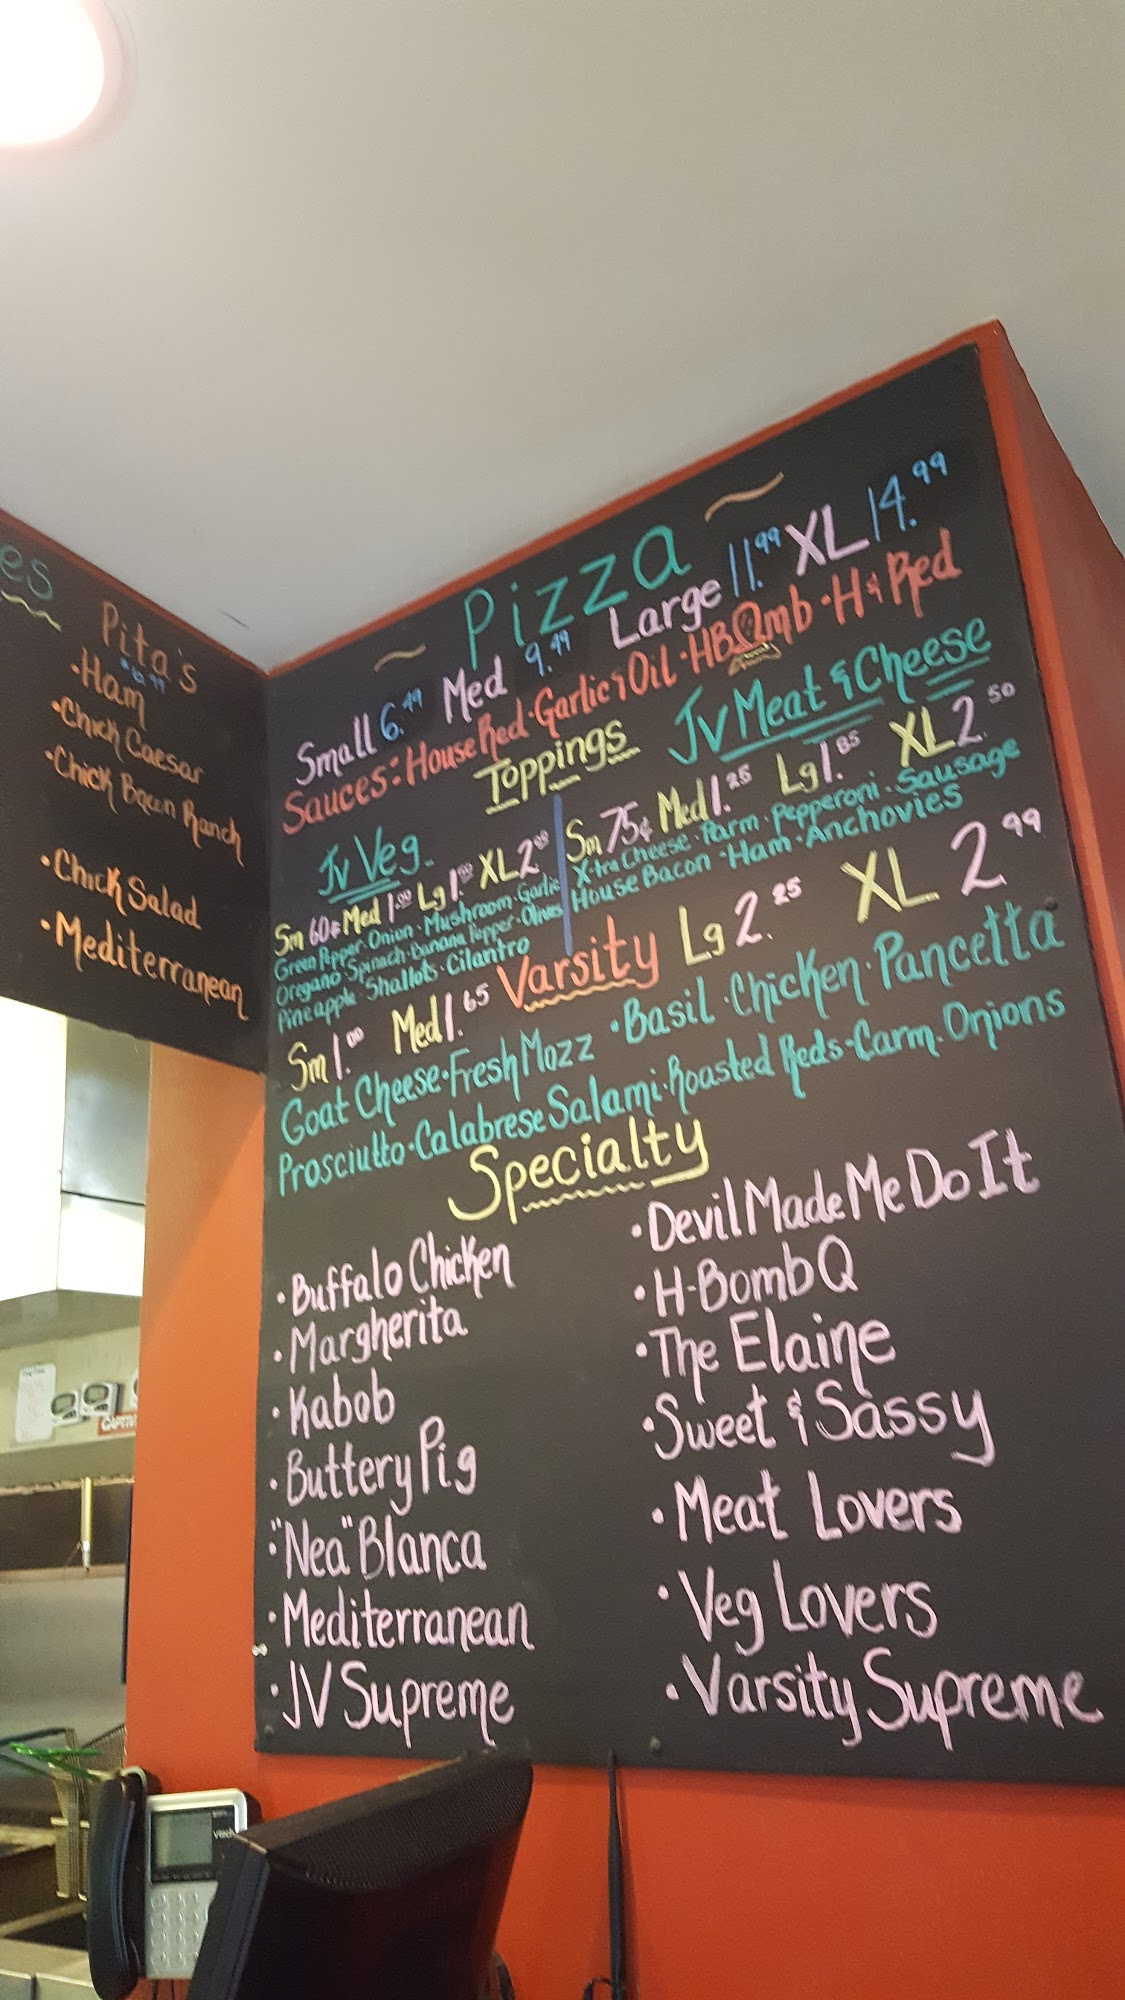 es
Pita's
$6.49
·Ham
·Chick Caesar
·Chick Bacon Ranch
·Chick Salad
·Mediterranean
~ Pizza ~
Small 6.49 Med 9.49 Large 11.99 XL 14.99
Sauces: House Red · Garlic & Oil · HBomb · H & Red
Toppings
Jv Veg.
Sm 60¢ Med 1.00 Lg 1.50 XL 2.00
Green Pepper · Onion · Mushroom · Garlic
Oregano · Spinach · Banana Pepper · Olives
Pineapple · Shallots · Cilantro
Jv Meat & Cheese
Sm 75¢ Med 1.25 Lg 1.85 XL 2.50
X-tra Cheese · Parm · Pepperoni · Sausage
House Bacon · Ham · Anchovies
Varsity
Sm 1.00 Med 1.65 Lg 2.25 XL 2.99
Goat Cheese · Fresh Mozz · Basil · Chicken · Pancetta
Prosciutto · Calabrese Salami · Roasted Reds · Carm. Onions
Specialty
· Buffalo Chicken
· Margherita
· Kabob
· Buttery Pig
· "Nea" Blanca
· Mediterranean
· JV Supreme
· Devil Made Me Do It
· H-Bomb Q
· The Elaine
· Sweet & Sassy
· Meat Lovers
· Veg Lovers
· Varsity Supreme
vtech